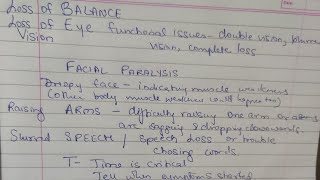 Loss of BALANCE
Loss of Eye functional issues - double vision, blurre
Vision vision, complete loss
FACIAL PARALYSIS
Droopy face - indicating muscle weakness
(other body muscle weakness could happen too)
Raising ARMS - difficulty raising one arm or
are sagging & dropping downwards.
Slurred SPEECH / speech loss or trouble
chosing words
T- Time is critical
Tell when symptoms started